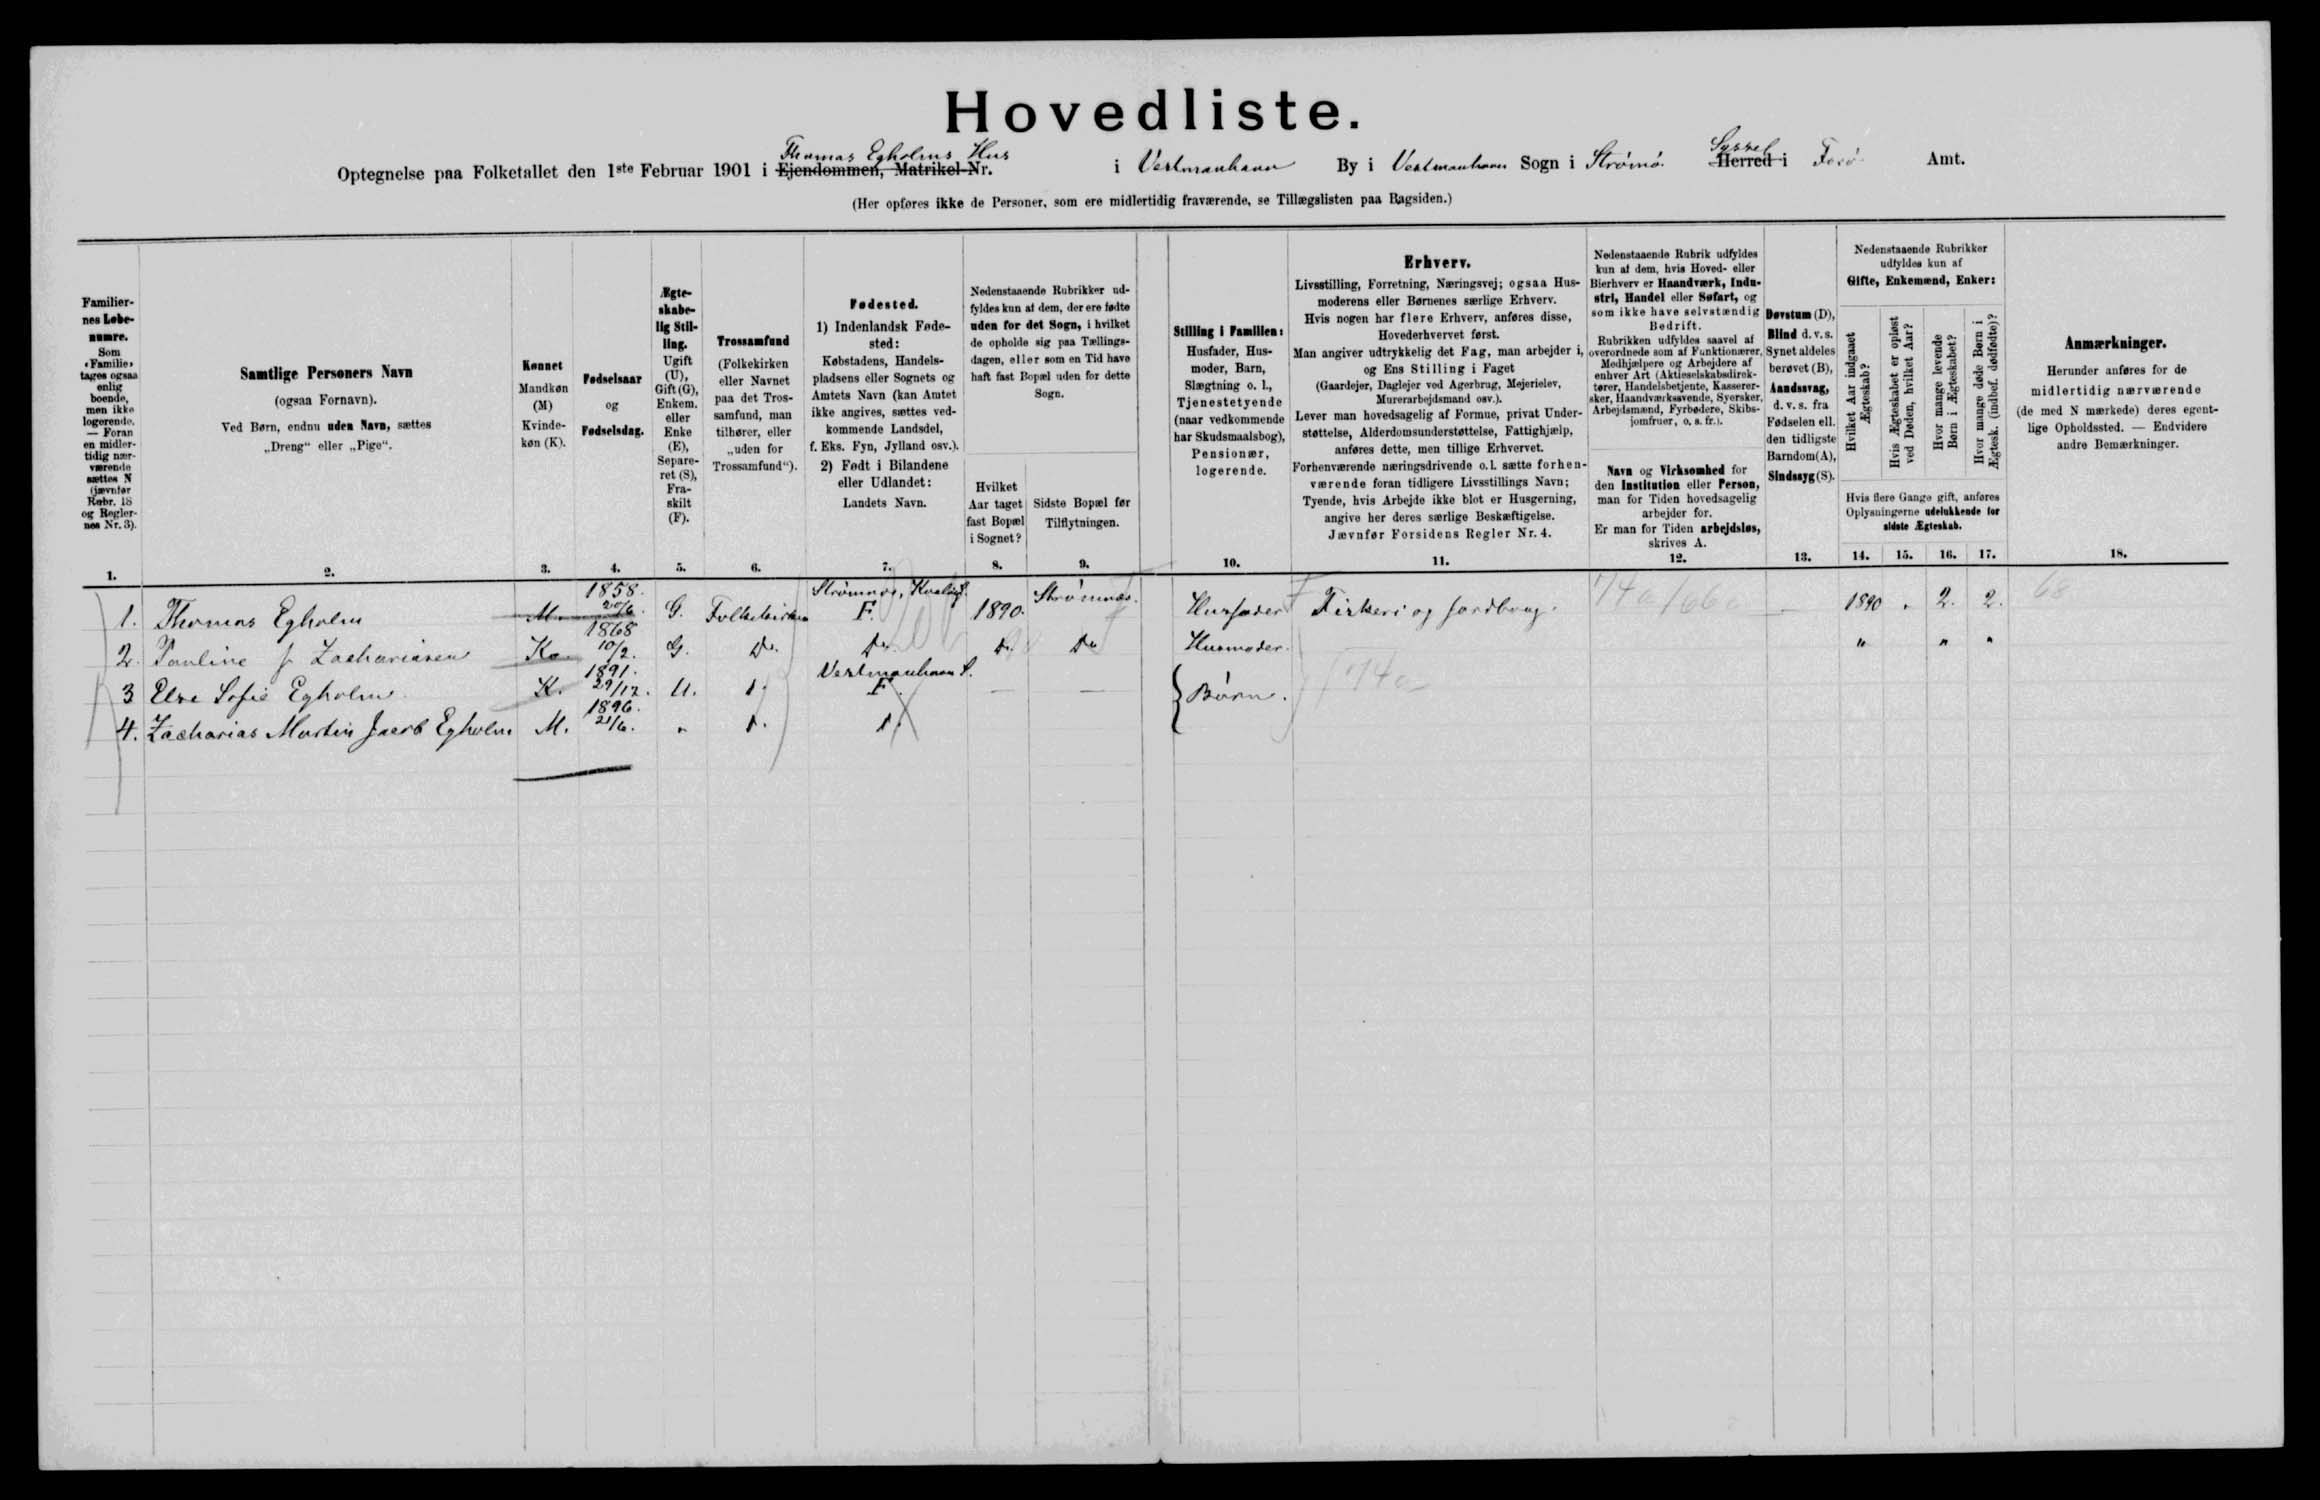 Hovedliste.
Thomas Egholms Hus
Syssel
Optegnelse paa Folketallet den 1ste Februar 1901 i Ejendommen, Matrikel-Nr. i Vestmanhavn By i Vestmanhavn Sogn i Strømø Herred i Færø Amt.
(Her opføres ikke de Personer, som ere midlertidig fraværende, se Tillægslisten paa Bagsiden.)
Familiernes Løbenumre.
Som
«Familie»
tages ogsaa
enlig
boende,
men ikke
logerende.
— Foran
en midler-
tidig nær-
værende
sættes N
(jævnfør
Rubr. 18
og Regler-
nes Nr. 3).
1.
Samtlige Personers Navn
(ogsaa Fornavn).
Ved Børn, endnu uden Navn, sættes
„Dreng“ eller „Pige“.
2.
Kønnet
Mandkøn
(M)
Kvinde-
køn (K).
3.
Fødselsaar
og
Fødselsdag.
4.
Ægte-
skabe-
lig Stil-
ling.
Ugift
(U),
Gift (G),
Enkem.
eller
Enke
(E),
Separe-
ret (S),
Fra-
skilt
(F).
5.
Trossamfund
(Folkekirken
eller Navnet
paa det Tros-
samfund, man
tilhører, eller
„uden for
Trossamfund“).
6.
Fødested.
1) Indenlandsk Føde-
sted:
Købstadens, Handels-
pladsens eller Sognets og
Amtets Navn (kan Amtet
ikke angives, sættes ved-
kommende Landsdel,
f. Eks. Fyn, Jylland osv.).
2) Født i Bilandene
eller Udlandet:
Landets Navn.
7.
Nedenstaaende Rubrikker ud-
fyldes kun af dem, der ere fødte
uden for det Sogn, i hvilket
de opholde sig paa Tællings-
dagen, eller som en Tid have
haft fast Bopæl uden for dette
Sogn.
Hvilket
Aar taget
fast Bopæl
i Sognet?
8.
Sidste Bopæl før
Tilflytningen.
9.
Stilling i Familien:
Husfader, Hus-
moder, Barn,
Slægtning o. l.,
Tjenestetyende
(naar vedkommende
har Skudsmaalsbog),
Pensionær,
logerende.
10.
Erhverv.
Livsstilling, Forretning, Næringsvej; ogsaa Hus-
moderens eller Børnenes særlige Erhverv.
Hvis nogen har flere Erhverv, anføres disse,
Hovederhvervet først.
Man angiver udtrykkelig det Fag, man arbejder i,
og Ens Stilling i Faget
(Gaardejer, Daglejer ved Agerbrug, Mejerielev,
Murerarbejdsmand osv.).
Lever man hovedsagelig af Formue, privat Under-
støttelse, Alderdomsunderstøttelse, Fattighjælp,
anføres dette, men tillige Erhvervet.
Forhenværende næringsdrivende o. l. sætte forhen-
værende foran tidligere Livsstillings Navn;
Tyende, hvis Arbejde ikke blot er Husgerning,
angive her deres særlige Beskæftigelse.
Jævnfør Forsidens Regler Nr. 4.
11.
Nedenstaaende Rubrik udfyldes
kun af dem, hvis Hoved- eller
Bierhverv er Haandværk, Indu-
stri, Handel eller Søfart, og
som ikke have selvstændig
Bedrift.
Rubrikken udfyldes saavel af
overordnede som af Funktionærer,
Medhjælpere og Arbejdere af
enhver Art (Aktieselskabsdirek-
tører, Handelsbetjente, Kasserer-
sker, Haandværkssvende, Syersker,
Arbejdsmænd, Fyrbødere, Skibs-
jomfruer, o. s. fr.).
Navn og Virksomhed for
den Institution eller Person,
man for Tiden hovedsagelig
arbejder for.
Er man for Tiden arbejdsløs,
skrives A.
12.
Døvstum (D),
Blind d. v. s.
Synet aldeles
berøvet (B),
Aandssvag,
d. v. s. fra
Fødselen ell.
den tidligste
Barndom (A),
Sindssyg (S).
13.
Nedenstaaende Rubrikker
udfyldes kun af
Gifte, Enkemænd, Enker:
Hvilket Aar indgaaet
Ægteskab?
Hvis Ægteskabet er opløst
ved Døden, hvilket Aar?
Hvor mange levende
Børn i Ægteskabet?
Hvor mange døde Børn i
Ægtesk. (indbef. dødfødte)?
Hvis flere Gange gift, anføres
Oplysningerne udelukkende for
sidste Ægteskab.
14. 15. 16. 17.
Anmærkninger.
Herunder anføres for de
midlertidig nærværende
(de med N mærkede) deres egent-
lige Opholdssted. — Endvidere
andre Bemærkninger.
18.
1858. Strømnæs, Strømnæs.
1. Thomas Egholm M. 20/6. G. Folkekirken F. 1890. Husfader Fiskeri og Jordbrug. — 1890 " 2. 2. 68
1868
2. Pauline f. Zachariasen K. 10/2. G. Do. Do. Do. Do. Husmoder. " " "
1891. Vestmanhavn S.
3 Else Sofie Egholm K. 29/12. U. D. F. — — Børn. 74a
1896.
4. Zacharias Martin Jacob Egholm M. 21/6. " D. D.